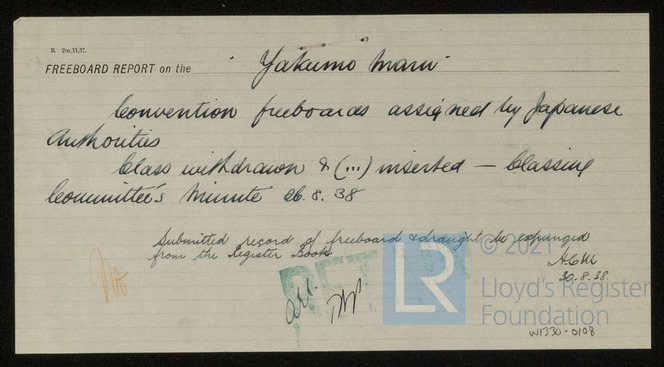 B. 2m,11,37.
FREEBOARD REPORT on the "Yakumo Maru"
Convention freeboards assigned by Japanese
Authorities
Class withdrawn & (...) inserted — Classing
Committee's Minute 26.8.38
Submitted record of freeboard & draught be expunged
from the Register Book
30.8.38
LR
© 2021
Lloyd's Register
Foundation
W1330-0108